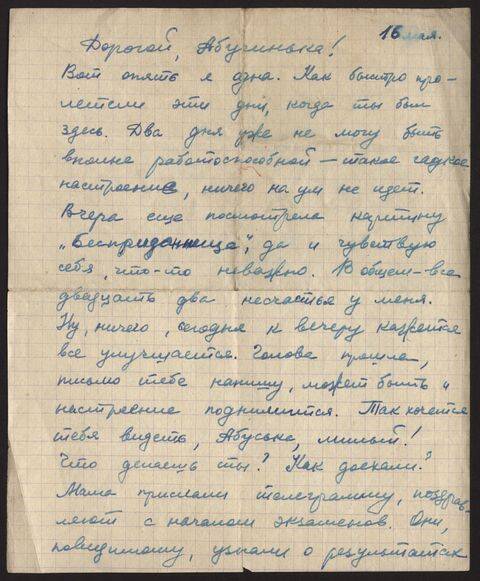 16 мая.
Дорогой, Абушинька!
Вот опять я одна. Как быстро про-
летели эти дни, когда ты был
здесь. Два дня уже не могу быть
вполне работоспособной – такое гадкое
настроение, ничего на ум не идет.
Вчера еще посмотрела картину
„Бесприданница", да и чувствую
себя, что-то неважно. В общем – все
двадцать два несчастья у меня.
Ну, ничего, сегодня к вечеру кажется
все улучшается. Голова прошла,
письмо тебе напишу, может быть и
настроение поднимится. Так хочется
тебя видеть, Абуська, милый!
Что делаешь ты? Как доехали?
Мама прислали телеграмму, поздрав-
ляют с началом экзаменов. Они,
повидимому, узнали о результатах